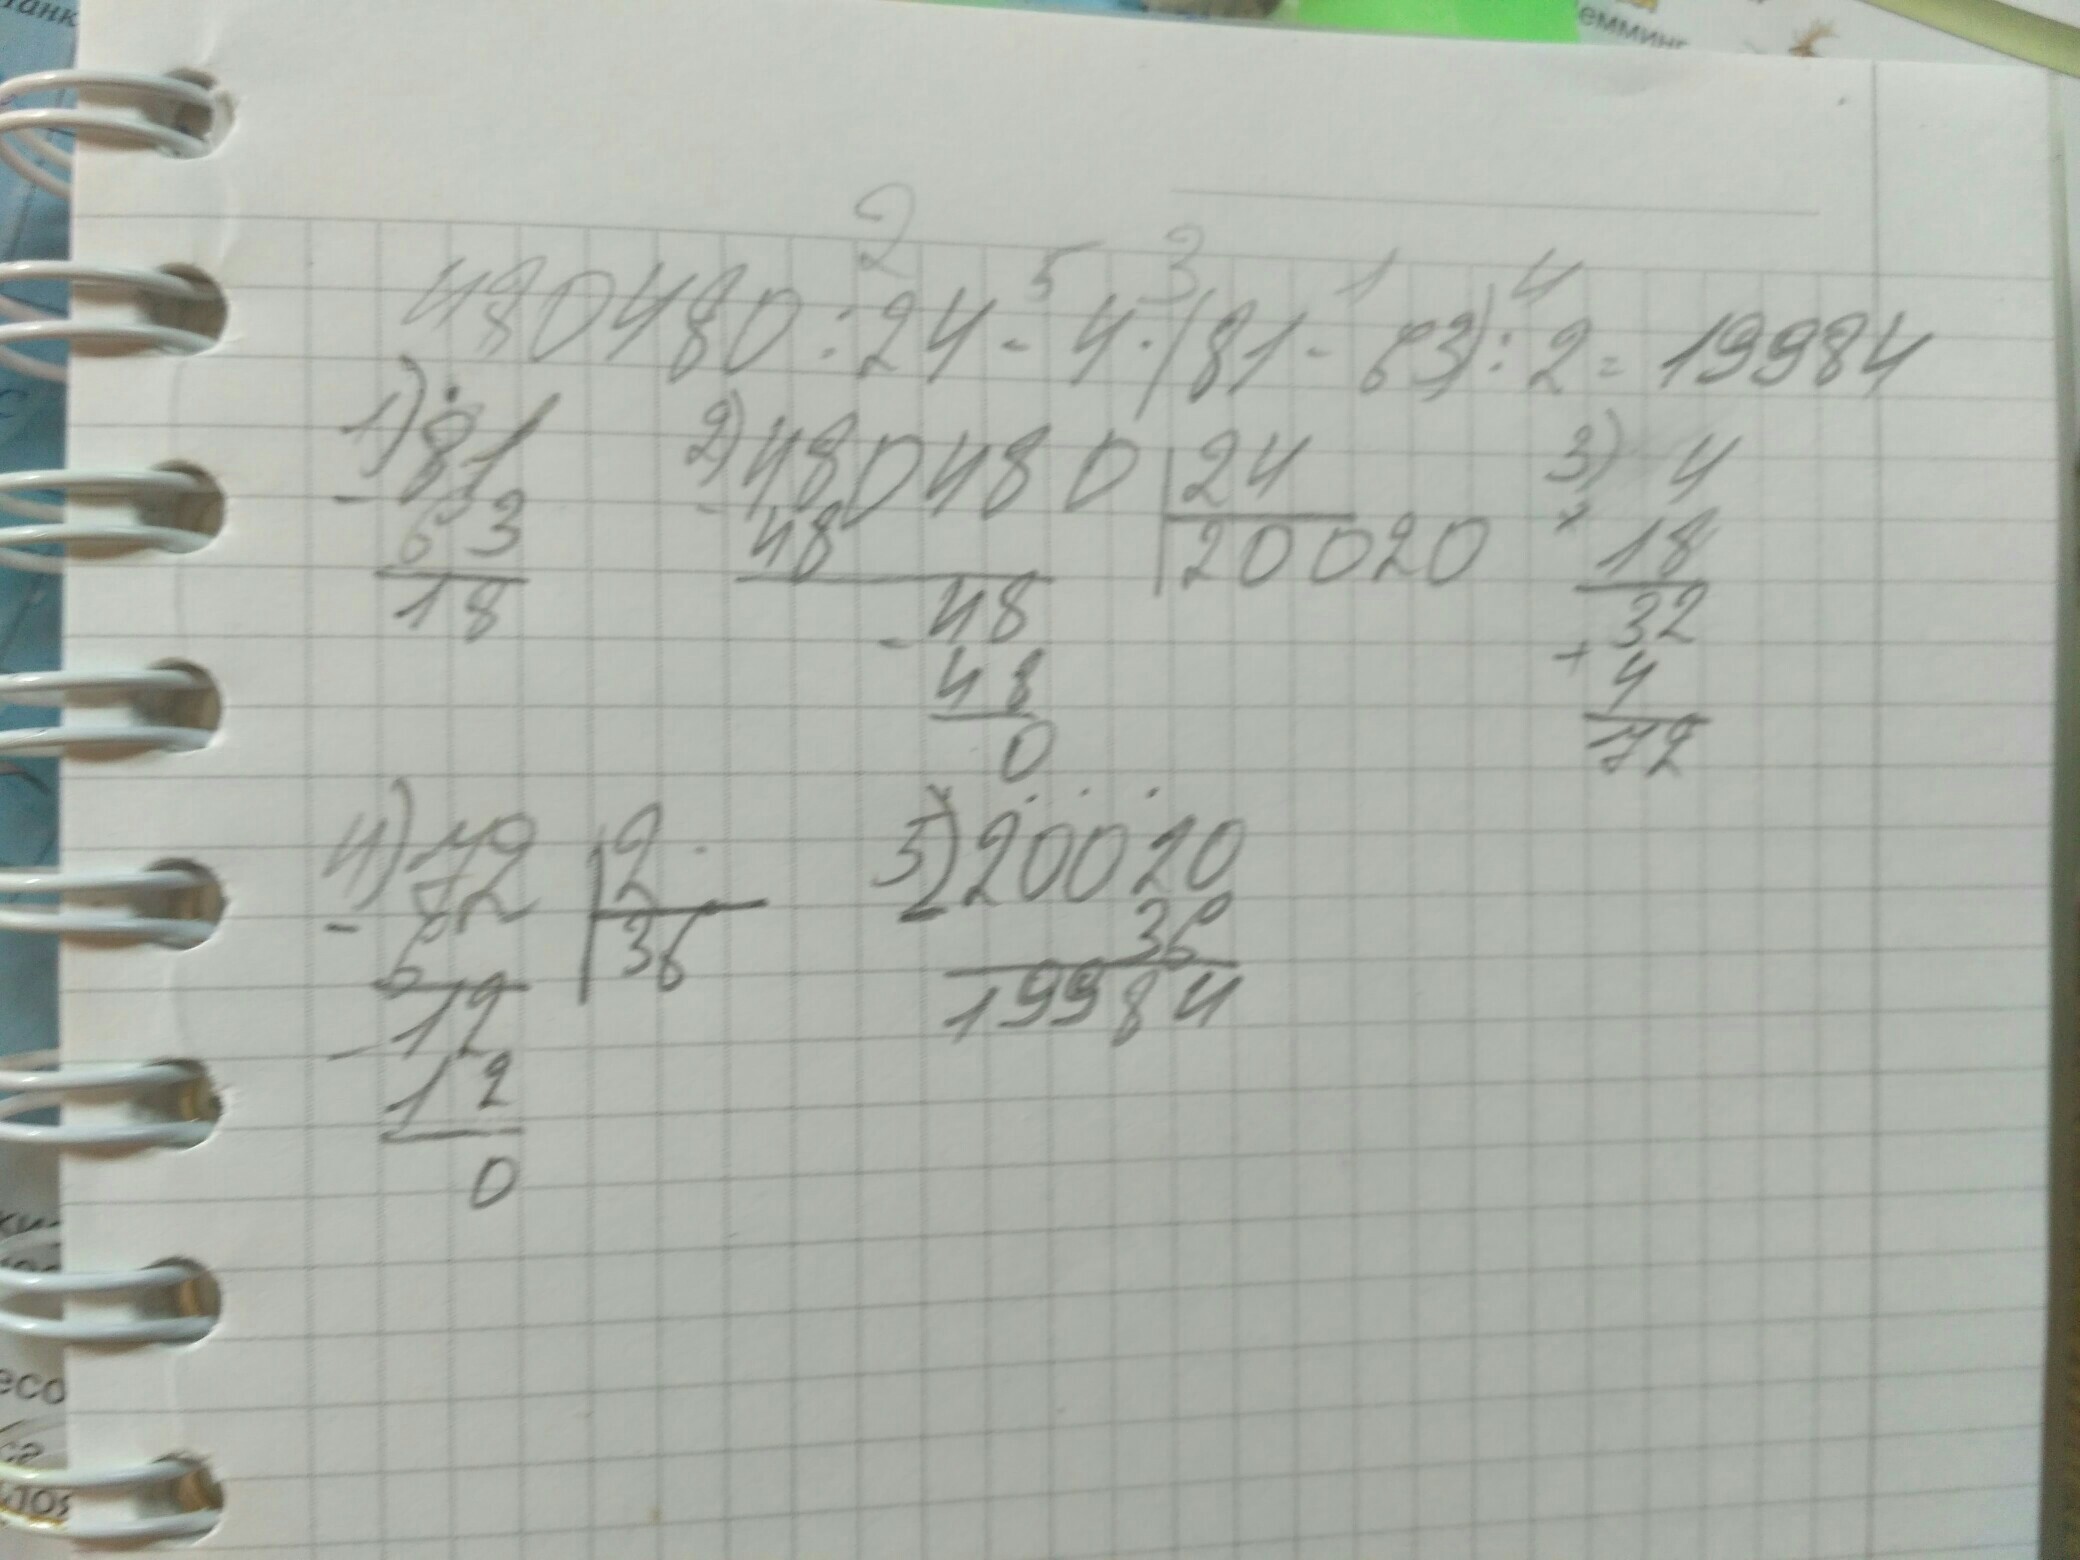 емминг
2 5 3 1 4
480480:24-4·(81-63):2=19984
1) 81 2) 480480 24 3) 4
- 63 - 48 20020 × 18
18 48 32
- 48 + 4
0 72
4) 72 2 5) 20020
- 6 36 - 36
12 19984
- 12
0